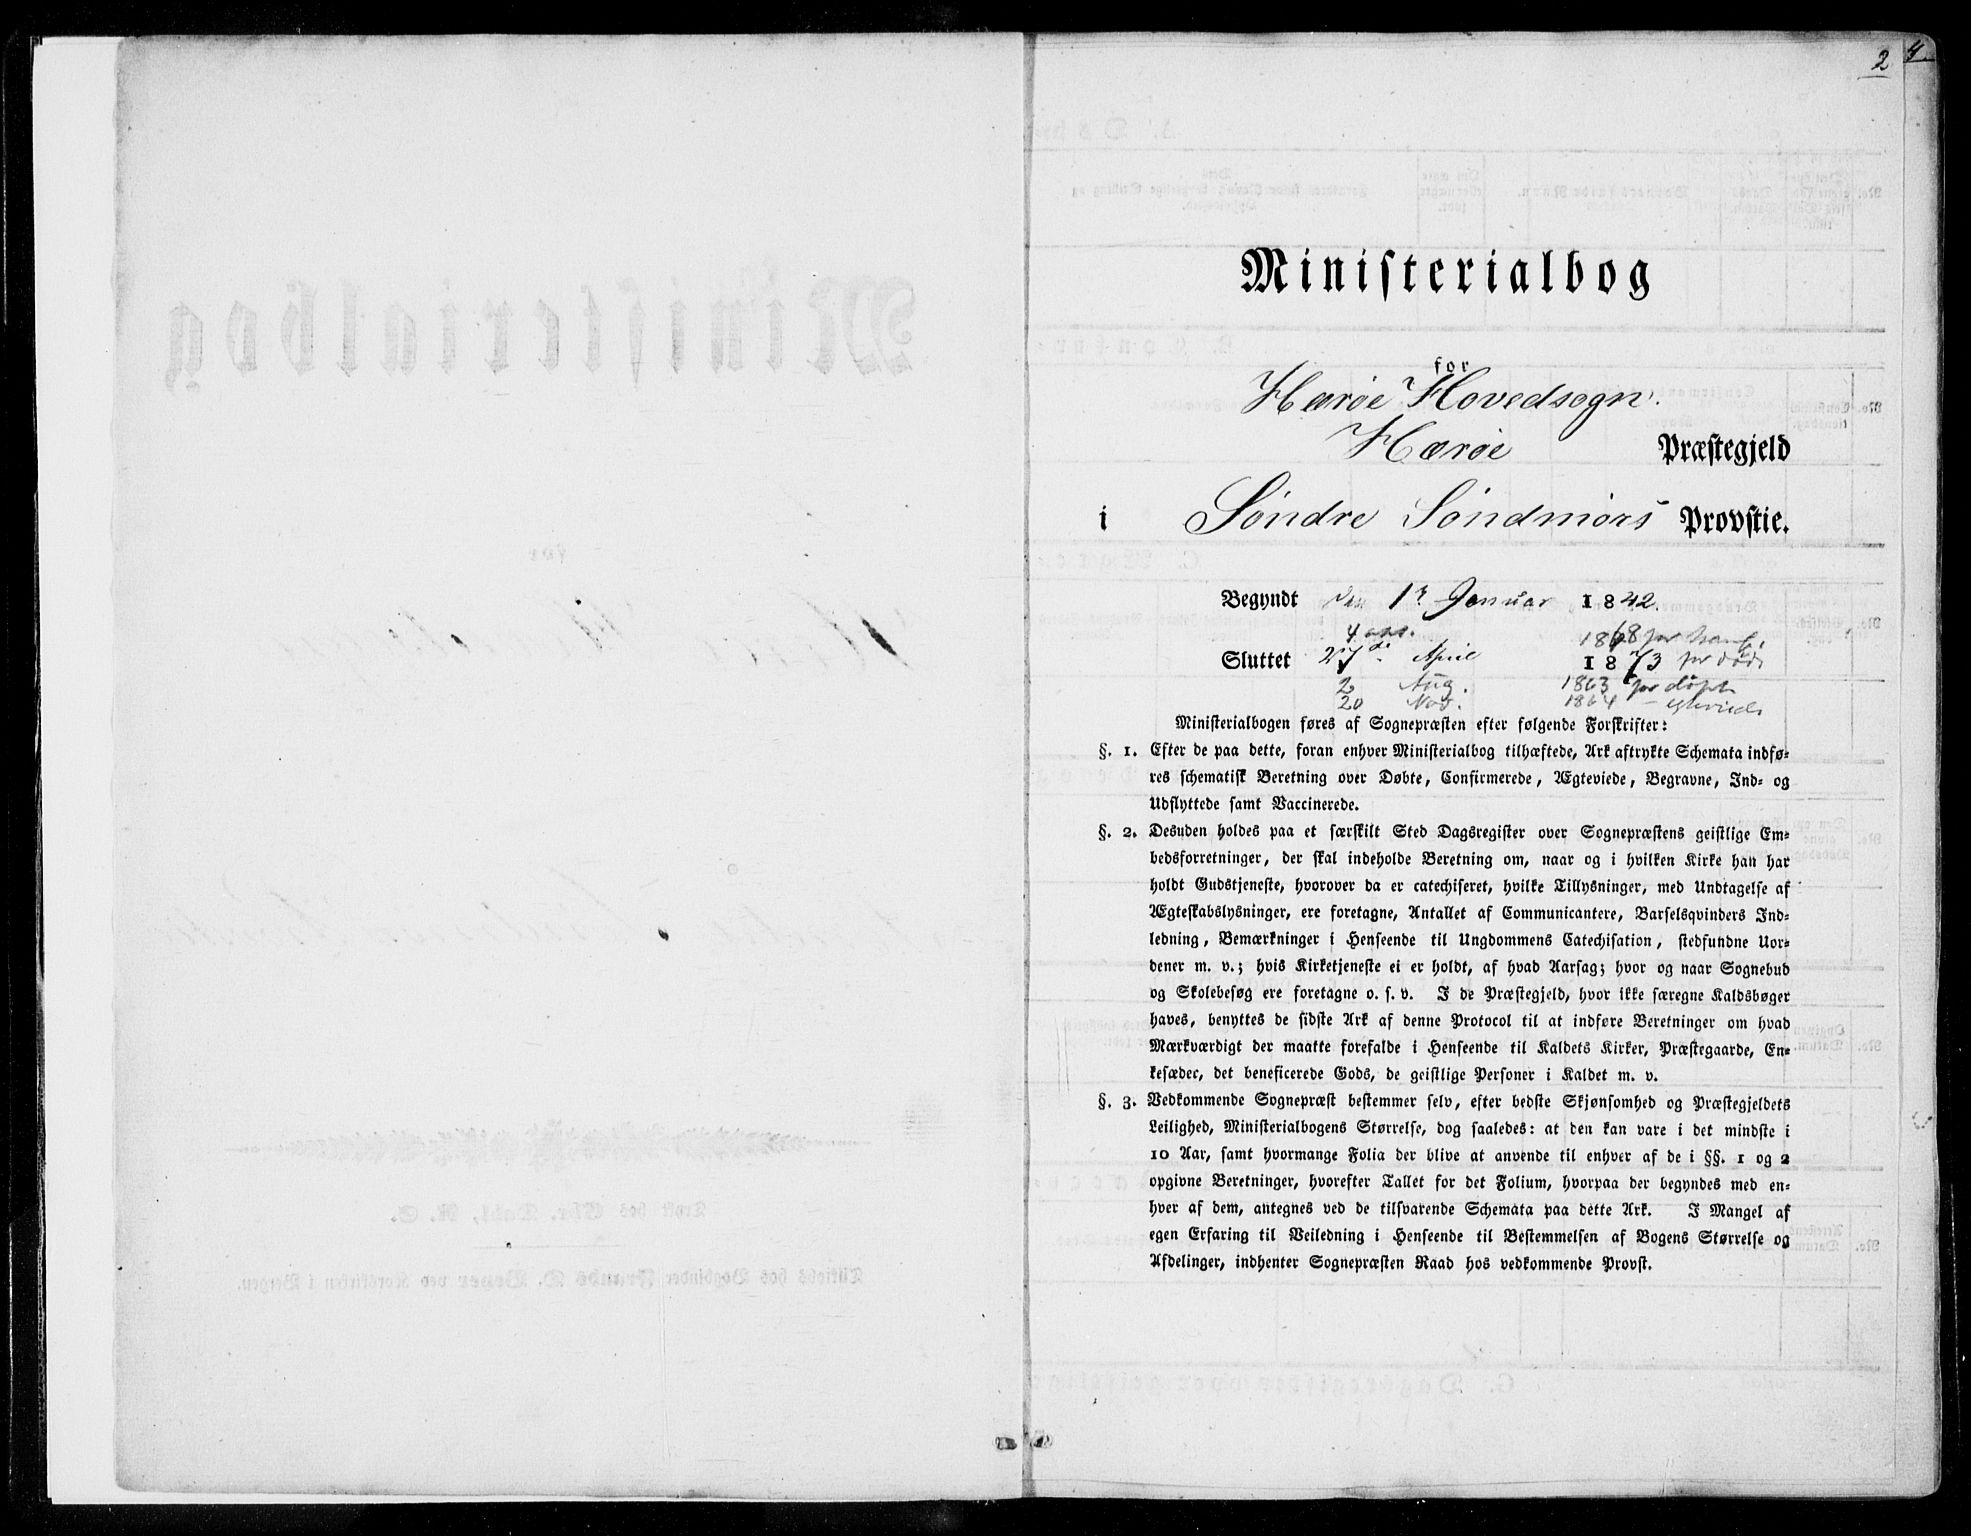 2
4
Ministerialbog
for
Herøe Hovedsogn.
Herøe Præstegjeld
i Søndre Søndmørs Provstie.
Begyndt den 1ste Januar 1842.
4 1868 for
Sluttet 27de April 1873 for døde
2 Aug. 1863 for døpte
20 Nov. 1864 – egteviede
Ministerialbogen føres af Sognepræsten efter følgende Forskrifter:
§. 1. Efter de paa dette, foran enhver Ministerialbog tilhæftede, Ark aftrykte Schemata indfø-
res schematisk Beretning over Døbte, Confirmerede, Ægteviede, Begravne, Ind- og
Udflyttede samt Vaccinerede.
§. 2. Desuden holdes paa et særskilt Sted Dagsregister over Sognepræstens geistlige Em-
bedsforretninger, der skal indeholde Beretning om, naar og i hvilken Kirke han har
holdt Gudstjeneste, hvorover da er catechiseret, hvilke Tillysninger, med Undtagelse af
Ægteskabslysninger, ere foretagne, Antallet af Communicantere, Barselsqvinders Ind-
ledning, Bemærkninger i Henseende til Ungdommens Catechisation, stedfundne Uor-
dener m. v.; hvis Kirketjeneste ei er holdt, af hvad Aarsag; hvor og naar Sognebud
og Skolebesøg ere foretagne o. s. v. I de Præstegjeld, hvor ikke særegne Kaldsbøger
haves, benyttes de sidste Ark af denne Protocol til at indføre Beretninger om hvad
Mærkværdigt der maatte forefalde i Henseende til Kaldets Kirker, Præstegaarde, En-
kesæder, det beneficerede Gods, de geistlige Personer i Kaldet m. v.
§. 3. Vedkommende Sognepræst bestemmer selv, efter bedste Skjønsomhed og Præstegjeldets
Leilighed, Ministerialbogens Størrelse, dog saaledes: at den kan vare i det mindste i
10 Aar, samt hvormange Folia der blive at anvende til enhver af de i §§. 1 og 2
opgivne Beretninger, hvorefter Tallet for det Folium, hvorpaa der begyndes med en-
hver af dem, antegnes ved de tilsvarende Schemata paa dette Ark. I Mangel af
egen Erfaring til Veiledning i Henseende til Bestemmelsen af Bogens Størrelse og
Afdelinger, indhenter Sognepræsten Raad hos vedkommende Provst.